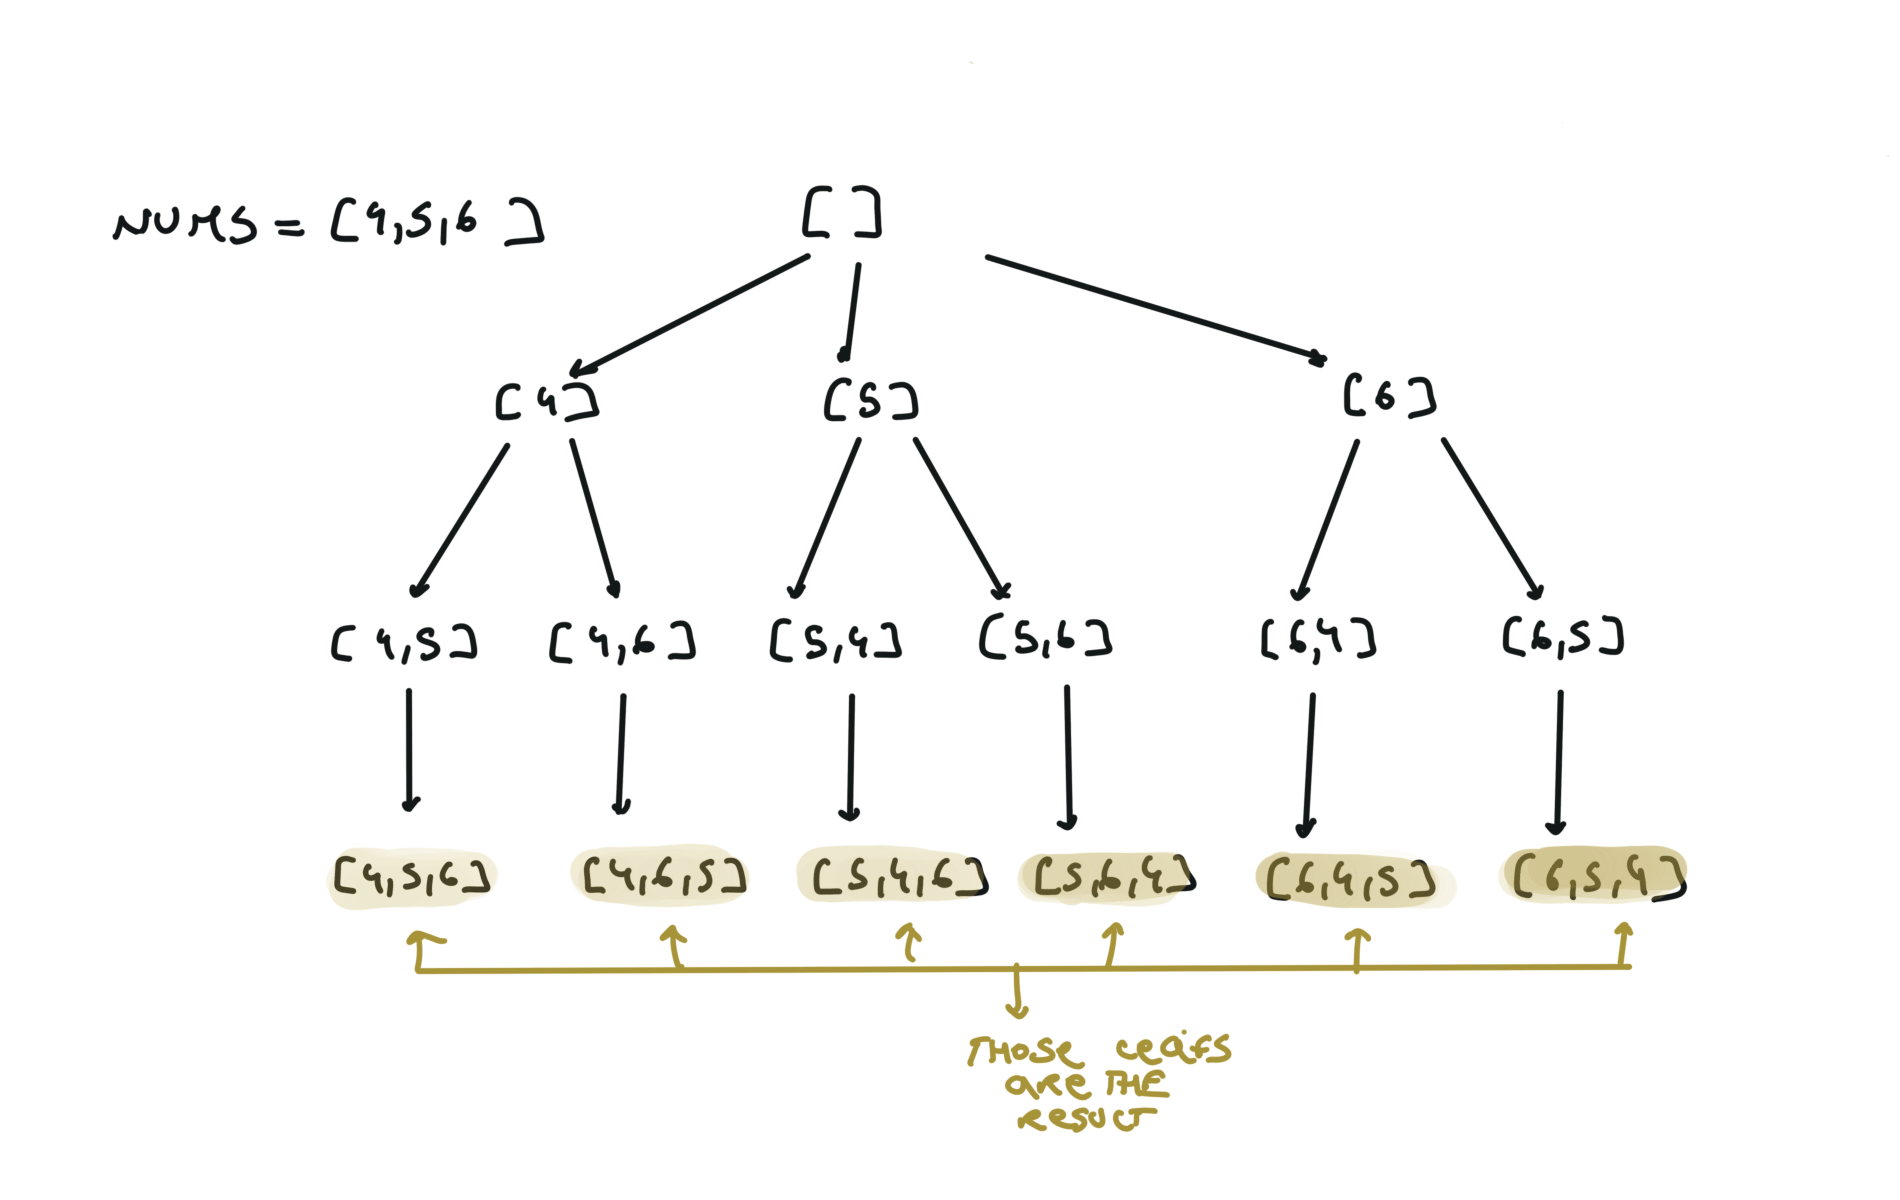 NUMS = [4,5,6]
[]
[4]
[5]
[6]
[4,5]
[4,6]
[5,4]
[5,6]
[6,4]
[6,5]
[4,5,6]
[4,6,5]
[5,4,6]
[5,6,4]
[6,4,5]
[6,5,4]
THOSE leafs
are THE
result